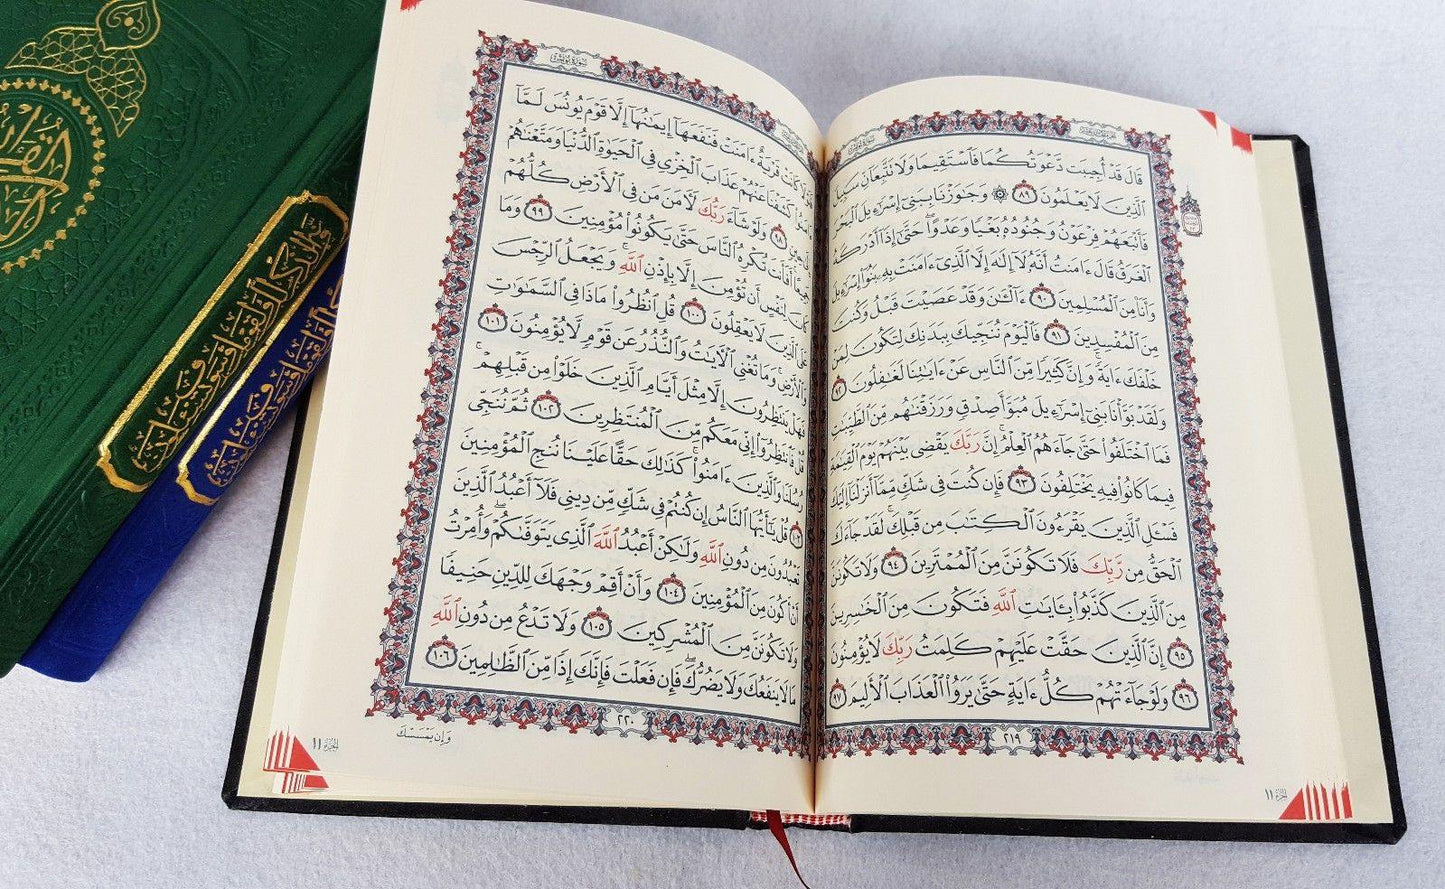 الجزء الحادي عشر
سورة يونس
قَالَ قَدْ أُجِيبَت دَّعْوَتُكُمَا فَٱسْتَقِيمَا وَلَا تَتَّبِعَآنِّ سَبِيلَ
ٱلَّذِينَ لَا يَعْلَمُونَ ٨٩ ۞ وَجَٰوَزْنَا بِبَنِىٓ إِسْرَٰٓءِيلَ ٱلْبَحْرَ
فَأَتْبَعَهُمْ فِرْعَوْنُ وَجُنُودُهُۥ بَغْيًا وَعَدْوًا ۖ حَتَّىٰٓ إِذَآ أَدْرَكَهُ
ٱلْغَرَقُ قَالَ ءَامَنتُ أَنَّهُۥ لَآ إِلَٰهَ إِلَّا ٱلَّذِىٓ ءَامَنَتْ بِهِۦ بَنُوٓا۟ إِسْرَٰٓءِيلَ
وَأَنَا۠ مِنَ ٱلْمُسْلِمِينَ ٩٠ ءَآلْـَٰٔنَ وَقَدْ عَصَيْتَ قَبْلُ وَكُنتَ
مِنَ ٱلْمُفْسِدِينَ ٩١ فَٱلْيَوْمَ نُنَجِّيكَ بِبَدَنِكَ لِتَكُونَ لِمَنْ
خَلْفَكَ ءَايَةً ۚ وَإِنَّ كَثِيرًا مِّنَ ٱلنَّاسِ عَنْ ءَايَٰتِنَا لَغَٰفِلُونَ ٩٢
وَلَقَدْ بَوَّأْنَا بَنِىٓ إِسْرَٰٓءِيلَ مُبَوَّأَ صِدْقٍ وَرَزَقْنَٰهُم مِّنَ ٱلطَّيِّبَٰتِ
فَمَا ٱخْتَلَفُوا۟ حَتَّىٰ جَآءَهُمُ ٱلْعِلْمُ ۚ إِنَّ رَبَّكَ يَقْضِى بَيْنَهُمْ يَوْمَ ٱلْقِيَٰمَةِ
فِيمَا كَانُوا۟ فِيهِ يَخْتَلِفُونَ ٩٣ فَإِن كُنتَ فِى شَكٍّ مِّمَّآ أَنزَلْنَآ إِلَيْكَ
فَسْـَٔلِ ٱلَّذِينَ يَقْرَءُونَ ٱلْكِتَٰبَ مِن قَبْلِكَ ۚ لَقَدْ جَآءَكَ
ٱلْحَقُّ مِن رَّبِّكَ فَلَا تَكُونَنَّ مِنَ ٱلْمُمْتَرِينَ ٩٤ وَلَا تَكُونَنَّ
مِنَ ٱلَّذِينَ كَذَّبُوا۟ بِـَٔايَٰتِ ٱللَّهِ فَتَكُونَ مِنَ ٱلْخَٰسِرِينَ
٩٥ إِنَّ ٱلَّذِينَ حَقَّتْ عَلَيْهِمْ كَلِمَتُ رَبِّكَ لَا يُؤْمِنُونَ
٩٦ وَلَوْ جَآءَتْهُمْ كُلُّ ءَايَةٍ حَتَّىٰ يَرَوُا۟ ٱلْعَذَابَ ٱلْأَلِيمَ ٩٧
٢١٩
الجزء ١١
سورة يونس
فَلَوْلَا كَانَتْ قَرْيَةٌ ءَامَنَتْ فَنَفَعَهَآ إِيمَٰنُهَآ إِلَّا قَوْمَ يُونُسَ لَمَّآ
ءَامَنُوا۟ كَشَفْنَا عَنْهُمْ عَذَابَ ٱلْخِزْىِ فِى ٱلْحَيَوٰةِ ٱلدُّنْيَا وَمَتَّعْنَٰهُمْ
إِلَىٰ حِينٍ ٩٨ وَلَوْ شَآءَ رَبُّكَ لَـَٔامَنَ مَن فِى ٱلْأَرْضِ كُلُّهُمْ
جَمِيعًا ۚ أَفَأَنتَ تُكْرِهُ ٱلنَّاسَ حَتَّىٰ يَكُونُوا۟ مُؤْمِنِينَ ٩٩ وَمَا
كَانَ لِنَفْسٍ أَن تُؤْمِنَ إِلَّا بِإِذْنِ ٱللَّهِ ۚ وَيَجْعَلُ ٱلرِّجْسَ
عَلَى ٱلَّذِينَ لَا يَعْقِلُونَ ١٠٠ قُلِ ٱنظُرُوا۟ مَاذَا فِى ٱلسَّمَٰوَٰتِ
وَٱلْأَرْضِ ۚ وَمَا تُغْنِى ٱلْـَٔايَٰتُ وَٱلنُّذُرُ عَن قَوْمٍ لَّا يُؤْمِنُونَ ١٠١
فَهَلْ يَنتَظِرُونَ إِلَّا مِثْلَ أَيَّامِ ٱلَّذِينَ خَلَوْا۟ مِن قَبْلِهِمْ ۚ
قُلْ فَٱنتَظِرُوٓا۟ إِنِّى مَعَكُم مِّنَ ٱلْمُنتَظِرِينَ ١٠٢ ثُمَّ نُنَجِّى
رُسُلَنَا وَٱلَّذِينَ ءَامَنُوا۟ ۚ كَذَٰلِكَ حَقًّا عَلَيْنَا نُنجِ ٱلْمُؤْمِنِينَ
١٠٣ قُلْ يَٰٓأَيُّهَا ٱلنَّاسُ إِن كُنتُمْ فِى شَكٍّ مِّن دِينِى فَلَآ أَعْبُدُ ٱلَّذِينَ
تَعْبُدُونَ مِن دُونِ ٱللَّهِ وَلَٰكِنْ أَعْبُدُ ٱللَّهَ ٱلَّذِى يَتَوَفَّىٰكُمْ ۖ وَأُمِرْتُ
أَنْ أَكُونَ مِنَ ٱلْمُؤْمِنِينَ ١٠٤ وَأَنْ أَقِمْ وَجْهَكَ لِلدِّينِ حَنِيفًا
وَلَا تَكُونَنَّ مِنَ ٱلْمُشْرِكِينَ ١٠٥ وَلَا تَدْعُ مِن دُونِ ٱللَّهِ
مَا لَا يَنفَعُكَ وَلَا يَضُرُّكَ ۖ فَإِن فَعَلْتَ فَإِنَّكَ إِذًا مِّنَ ٱلظَّٰلِمِينَ ١٠٦
٢٢٠
وَإِن يَمْسَسْكَ
الجزء ١١